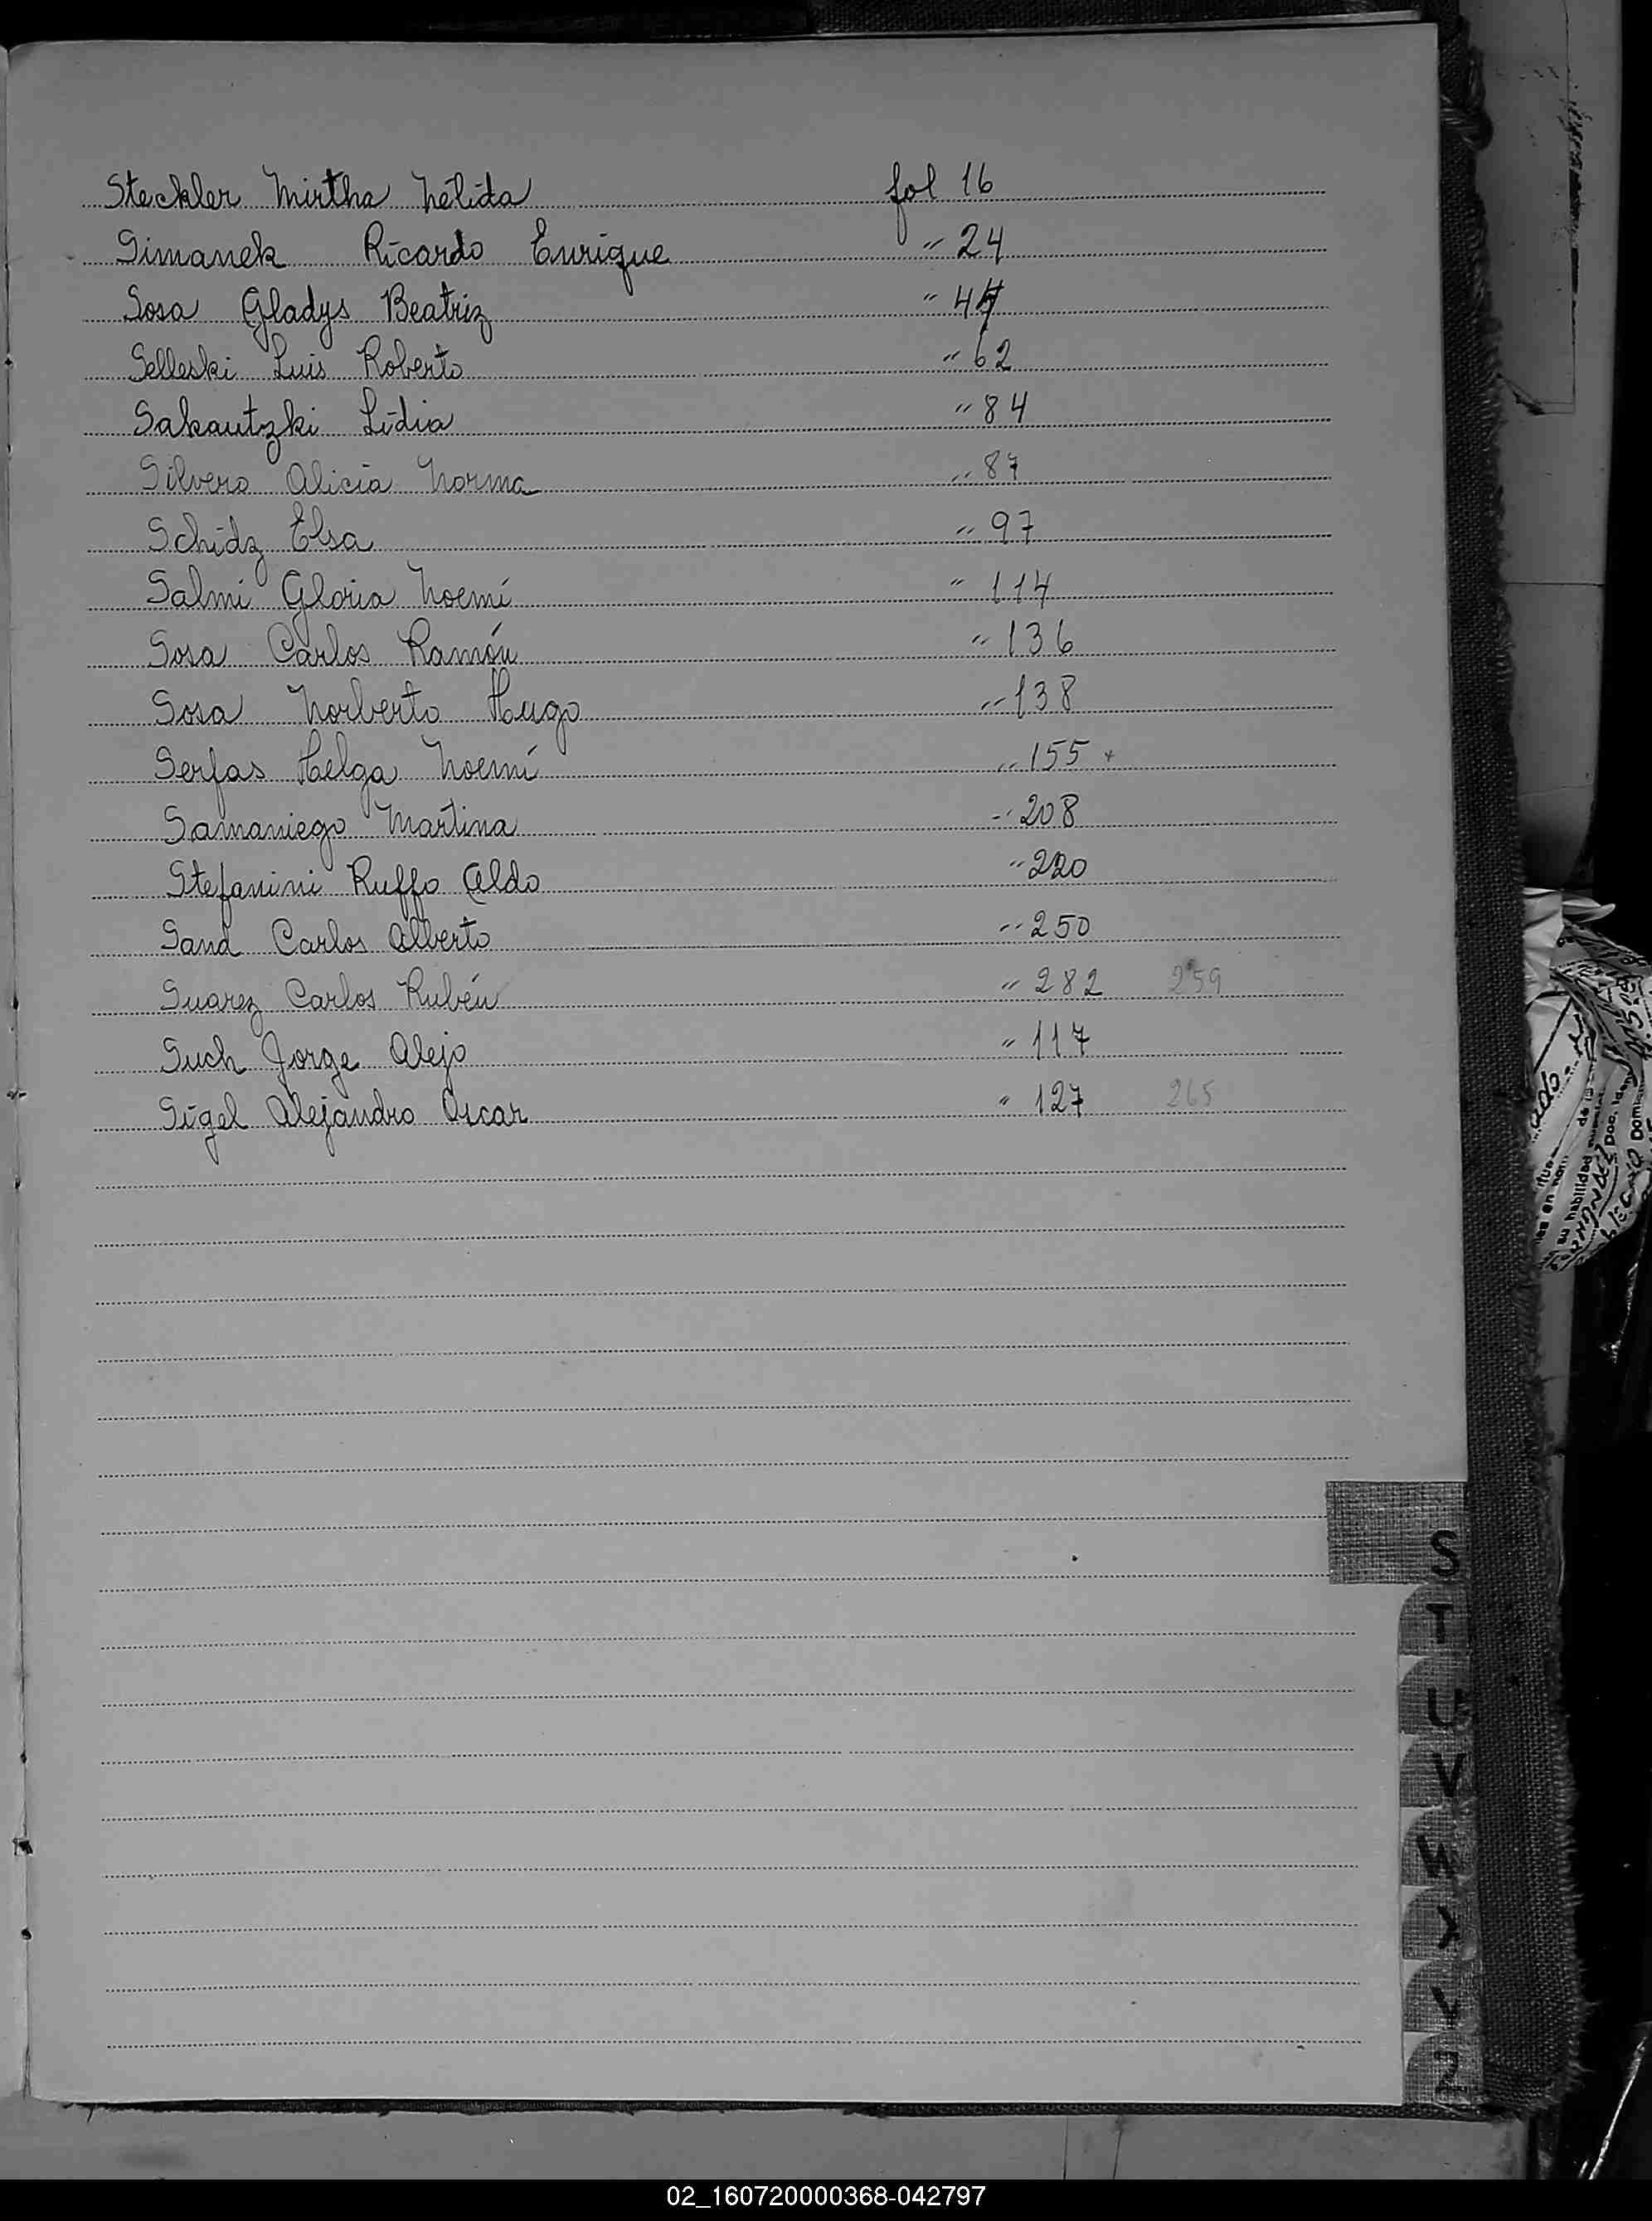 Steckler Mirtha Nélida fol 16
Simanek Ricardo Enrique " 24
Sosa Gladys Beatriz " 47
Selleski Luis Roberto " 62
Sakautzki Lidia " 84
Silvero Alicia Norma " 87
Schidz Elsa " 97
Salmi Gloria Noemí " 114
Sosa Carlos Ramón " 136
Sosa Norberto Hugo " 138
Serfas Helga Noemí " 155 +
Samaniego Martina " 208
Stefanini Ruffo Aldo " 220
Sand Carlos Alberto " 250
Suarez Carlos Rubén " 282 259
Such Jorge Alejo " 117
Sigel Alejandro Oscar " 127 265
S
T
U
V
W
X
Y
Z
02_160720000368-042797